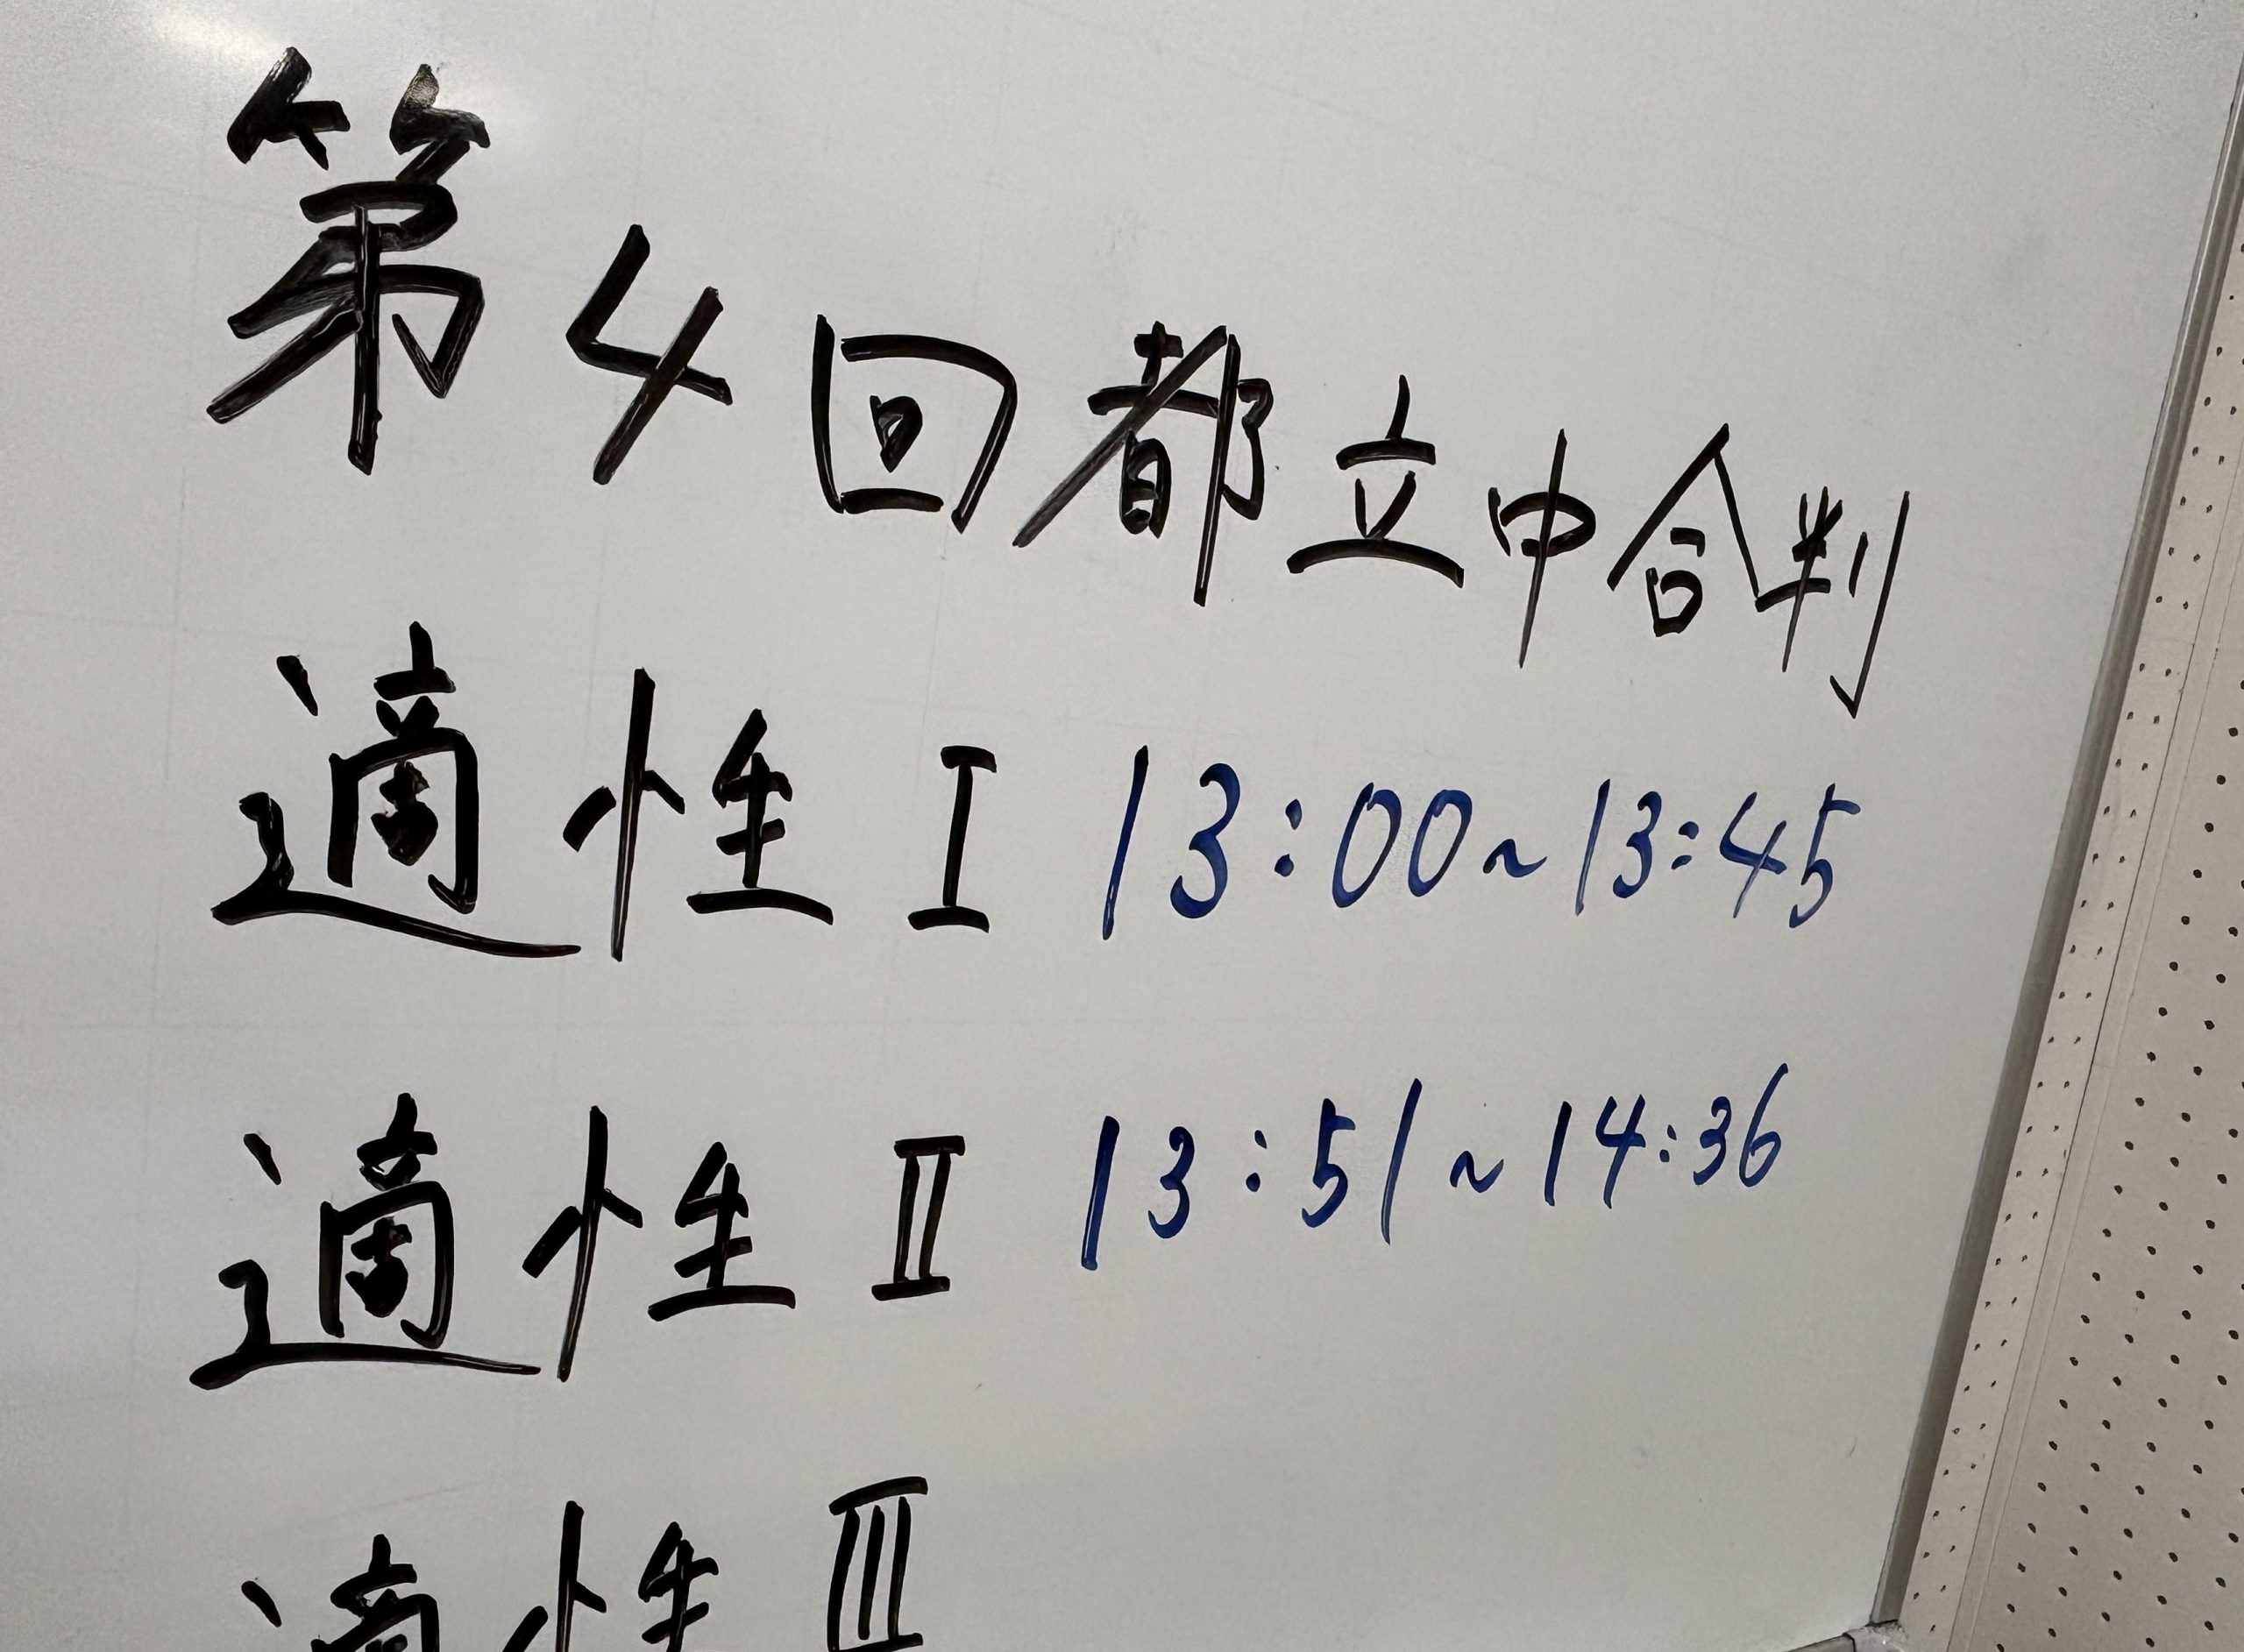 第4回都立中合判
適性Ⅰ 13:00~13:45
適性Ⅱ 13:51~14:36
適性Ⅲ